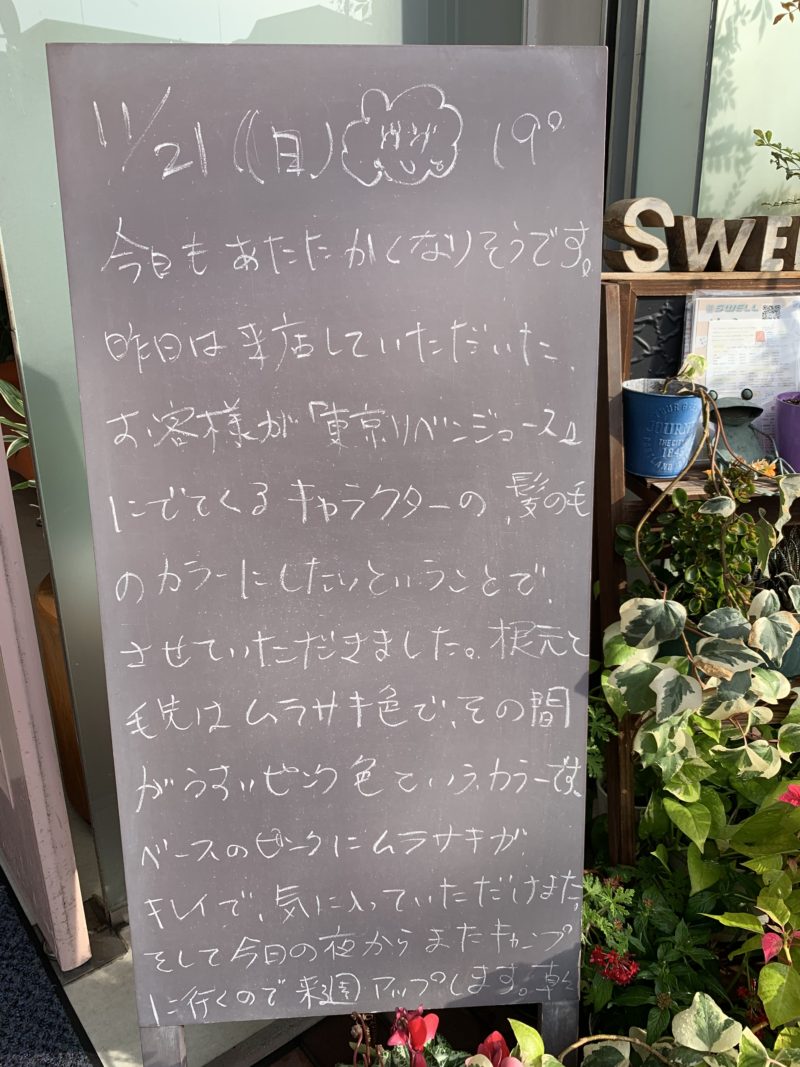 11/21 (日) 19°
今日もあたたかくなりそうです。
昨日は来店していただいた、
お客様が「東京リベンジャーズ」
にでてくるキャラクターの、髪の毛
のカラーにしたいということで、
させていただきました。根元と
毛先はムラサキ色で、その間
がうすいピンク色ていうカラーです。
ベースのピンクにムラサキが
キレイで、気に入っていただけました。
そして今日の夜からまたキャンプ
に行くので来週アップします。
SWE
SWELL
JOURN
THE CITY